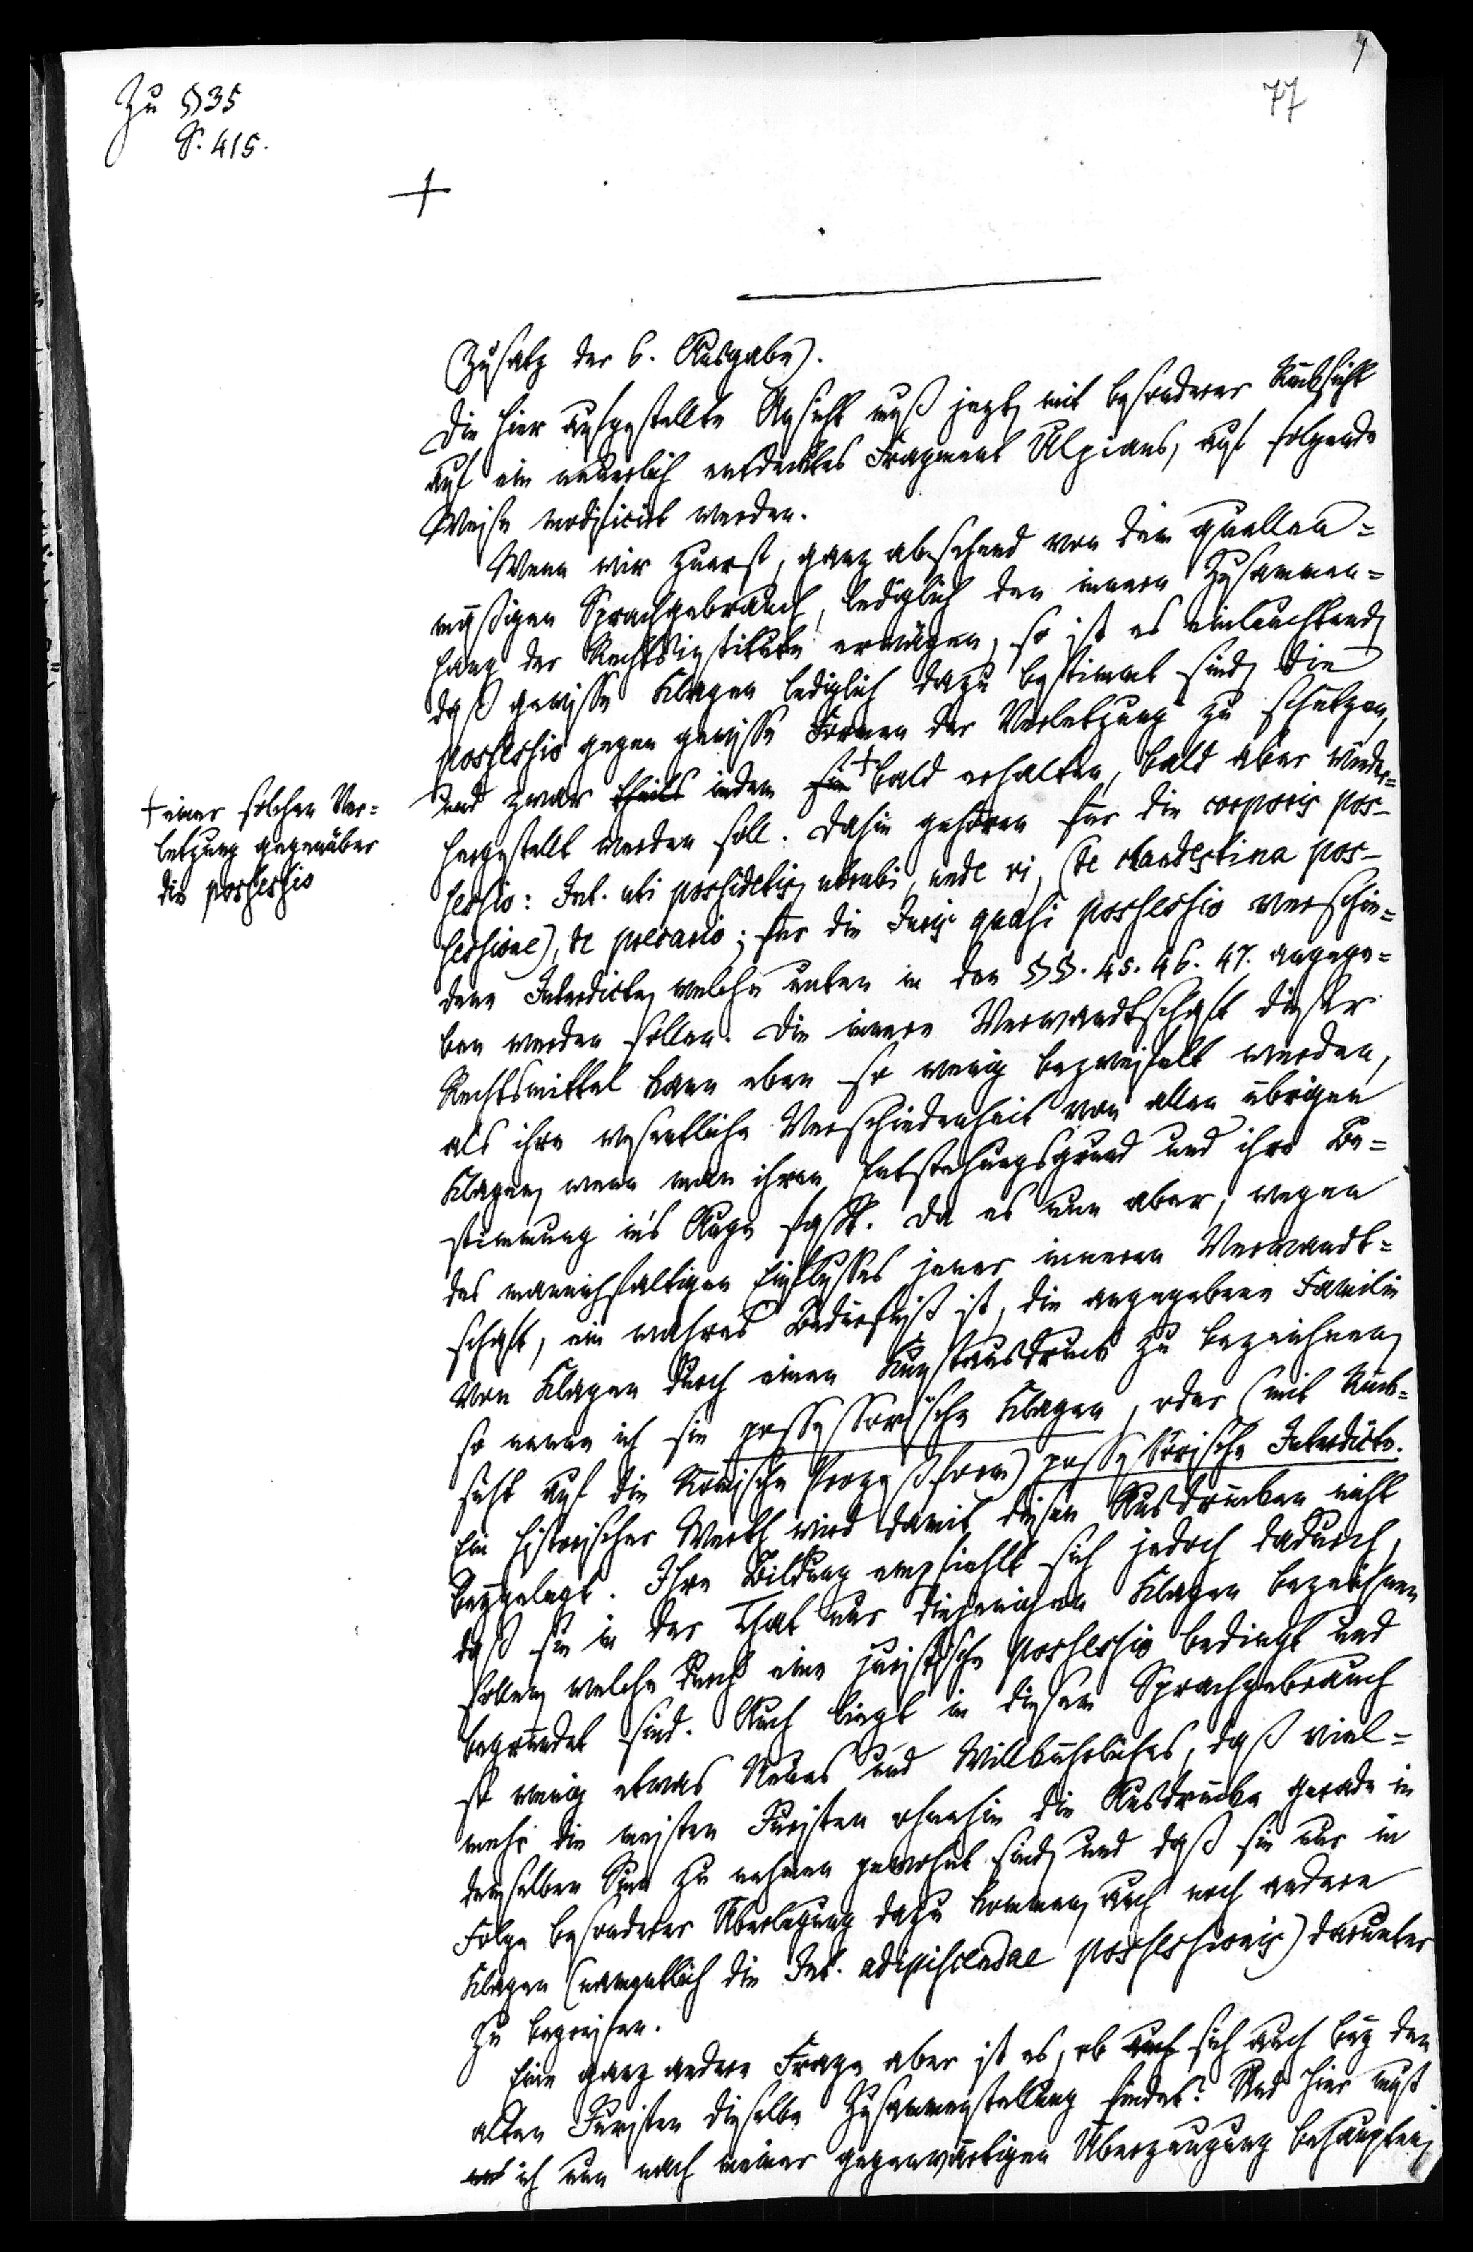 Zu § 35
S. 415.
77
Zusatz der 6. Ausgabe).
Die hier aufgestellte Ansicht muß jetzt, mit besonderer Rücksicht
auf ein neuerlich entdecktes Fragment Ulpians, auf folgende
Weise modificirt werden.
Wenn wir zuerst, ganz absehend von dem quellen=
mäßigen Sprachgebrauch, lediglich den innern Zusammen=
hang der Rechtsinstitute erwägen, so ist es einleuchtend,
daß gewisse Klagen lediglich dazu bestimmt sind, die
possessio gegen gewisse Formen der Verletzung zu schützen,
und zwar theils indem sie + bald erhalten, bald aber wieder=
hergestellt werden soll. Dahin gehören für die corporis pos-
sessio: Int. uti possidetis, utrubi, unde vi, (de clandestina pos-
sessione), de precario; für die Juris quasi possessio verschie=
dene Interdicte, welche unten in den §§. 45. 46. 47. angege=
ben werden sollen. Die innere Verwandtschaft dieser
Rechtsmittel kann eben so wenig bezweifelt werden,
als ihre wesentliche Verschiedenheit von allen übrigen
Klagen, wenn man ihren Entstehungsgrund und ihre Be=
stimmung in's Auge faßt. Da es nun aber, wegen
des mannichfaltigen Einflusses jener inneren Verwandt=
schaft, ein wahres Bedürfniß ist, die angegebene Familie
von Klagen durch einen Kunstausdruck zu bezeichnen,
so nenne ich sie possessorische Klagen, oder (mit Rück=
sicht auf die Römische Prozeßform) possessorische Interdicte.
Ein historischer Werth wird damit diesen Ausdrücken nicht
beygelegt. Ihre Bildung empfiehlt sich jedoch dadurch,
daß sie in der That nur diejenigen Klagen bezeichnen
sollen, welche durch eine juristische possessio bedingt und
begründet sind. Auch liegt in diesem Sprachgebrauch
so wenig etwas Neues und Willkührliches, daß viel=
mehr die meisten Juristen ohnehin die Ausdrücke gerade in
demselben Sinn zu nehmen gewohnt sind, und daß sie nur in
Folge besonderer Überlegung dazu kommen, auch noch andere
Klagen (namentlich die Int. adipiscendae possessionis) darunter
zu begreifen.
Eine ganz andere Frage aber ist es, ob auch sich auch bey den
alten Juristen dieselbe Zusammenstellung findet? Und hier muß
ich nun nach meiner gegenwärtigen Überzeugung behaupten,
+ einer solchen Ver=
letzung gegenüber
die possessio